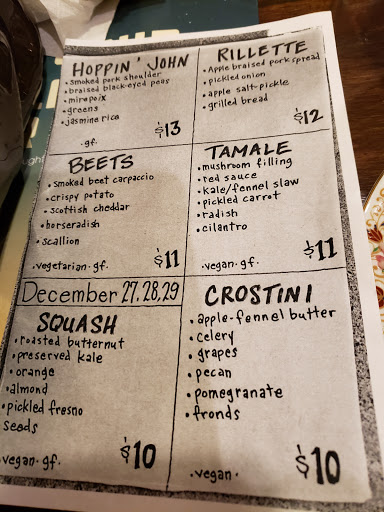 HOPPIN' JOHN
• smoked pork shoulder
• braised black-eyed peas
• mirepoix
• greens
• jasmine rice
• gf •
$13
RILLETTE
• Apple braised pork spread
• pickled onion
• apple salt-pickle
• grilled bread
$12
BEETS
• smoked beet carpaccio
• crispy potato
• scottish cheddar
• horseradish
• scallion
• vegetarian • gf •
$11
TAMALE
• mushroom filling
• red sauce
• kale/fennel slaw
• pickled carrot
• radish
• cilantro
• vegan • gf •
$11
December 27, 28, 29
SQUASH
• roasted butternut
• preserved kale
• orange
• almond
• pickled fresno
seeds
• vegan • gf •
$10
CROSTINI
• apple-fennel butter
• celery
• grapes
• pecan
• pomegranate
• fronds
• vegan •
$10